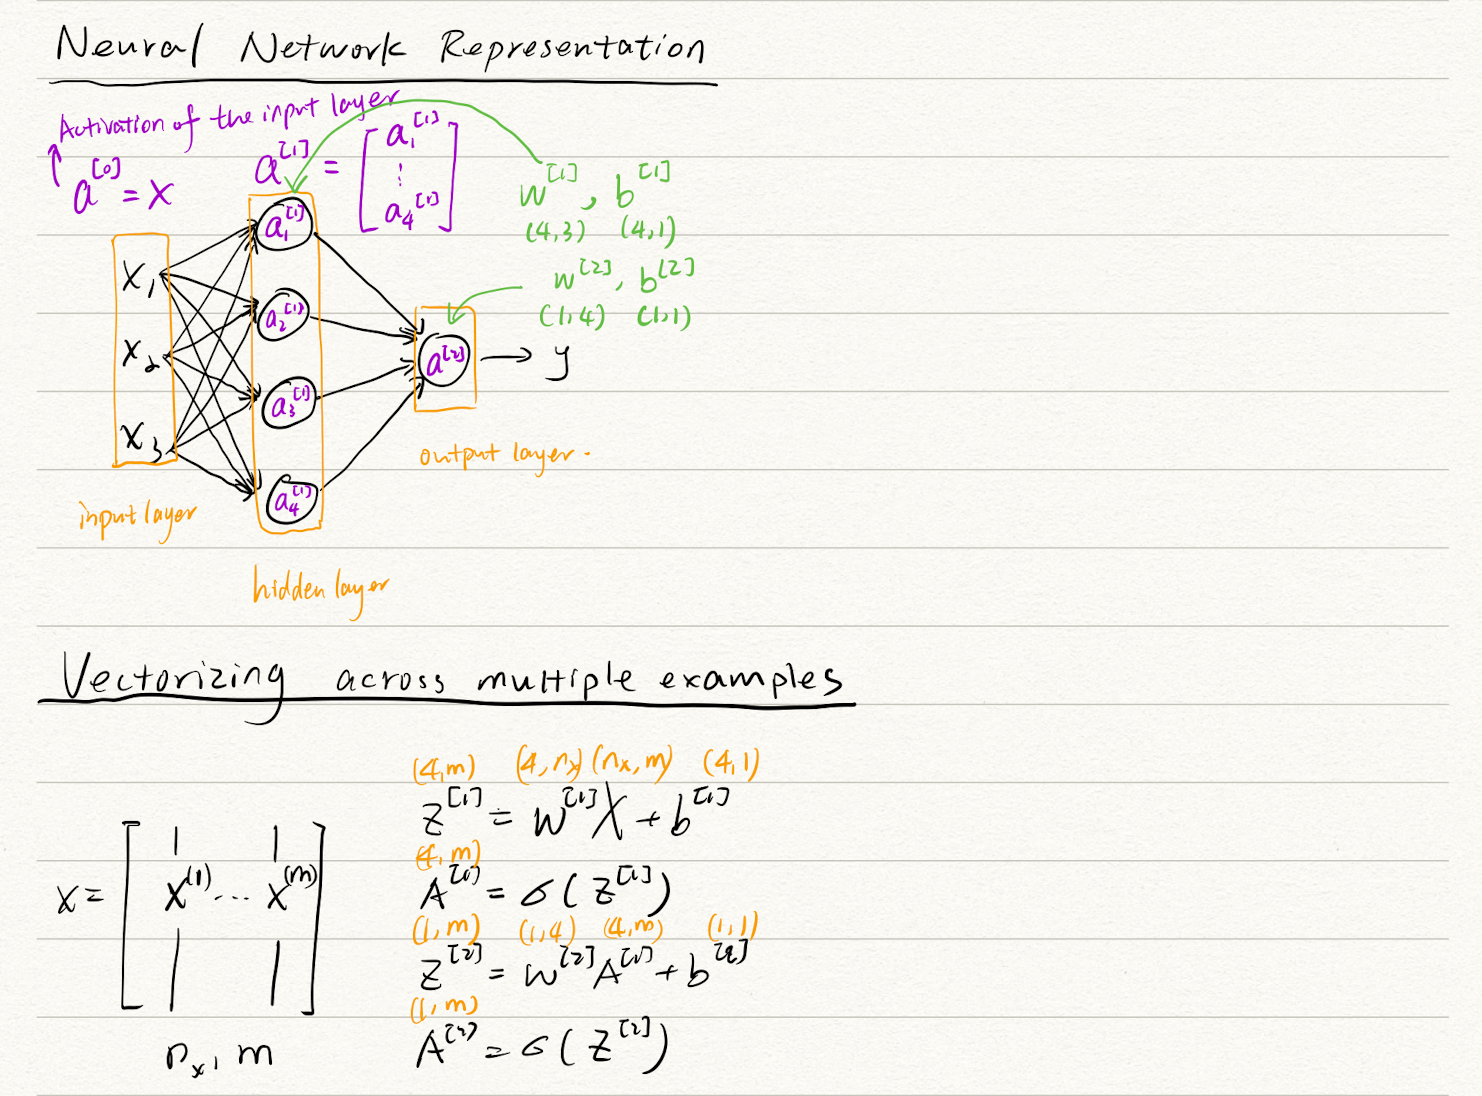 Neural Network Representation
Activation of the input layer
a^[0] = X
a^[1] = [ a₁^[1] ⋮ a₄^[1] ]
w^[1], b^[1]
(4,3) (4,1)
w^[2], b^[2]
(1,4) (1,1)
x₁
x₂
x₃
a₁^[1]
a₂^[1]
a₃^[1]
a₄^[1]
a^[2] → y
input layer
hidden layer
output layer.
Vectorizing across multiple examples
X = [ x^(1) ... x^(m) ]
n_x, m
(4,m) (4,n_x) (n_x,m) (4,1)
Z^[1] = w^[1]X + b^[1]
(4,m)
A^[1] = σ(Z^[1])
(1,m) (1,4) (4,m) (1,1)
Z^[2] = w^[2]A^[1] + b^[2]
(1,m)
A^[2] = σ(Z^[2])